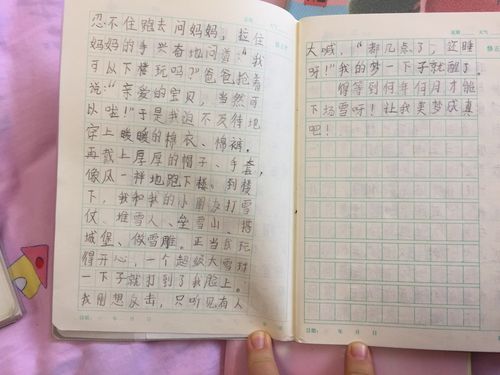 忍不住跑去问妈妈，拉住
妈妈的手兴奋地问着：“我
可以下楼玩吗？”爸爸抢着
说：“亲爱的宝贝，当然可
以啦！”于是我迫不及待地
穿上暖暖的棉衣、棉裤，
再戴上厚厚的帽子、手套，
像风一样地跑下楼。到楼
下，我和我的小朋友打雪
仗、堆雪人、垒雪山、搭
城堡、做雪雕。正当我玩
得开心，一个超级大雪球
一下子就打到了我脸上。
我刚想反击，只听见有人
日期： 年 月 日
大喊，“都几点了，还睡
呀！”我的梦一下子就醒了。
得等到何年何月才能
下场雪呀！让我美梦成真
吧！
日期： 年 月 日